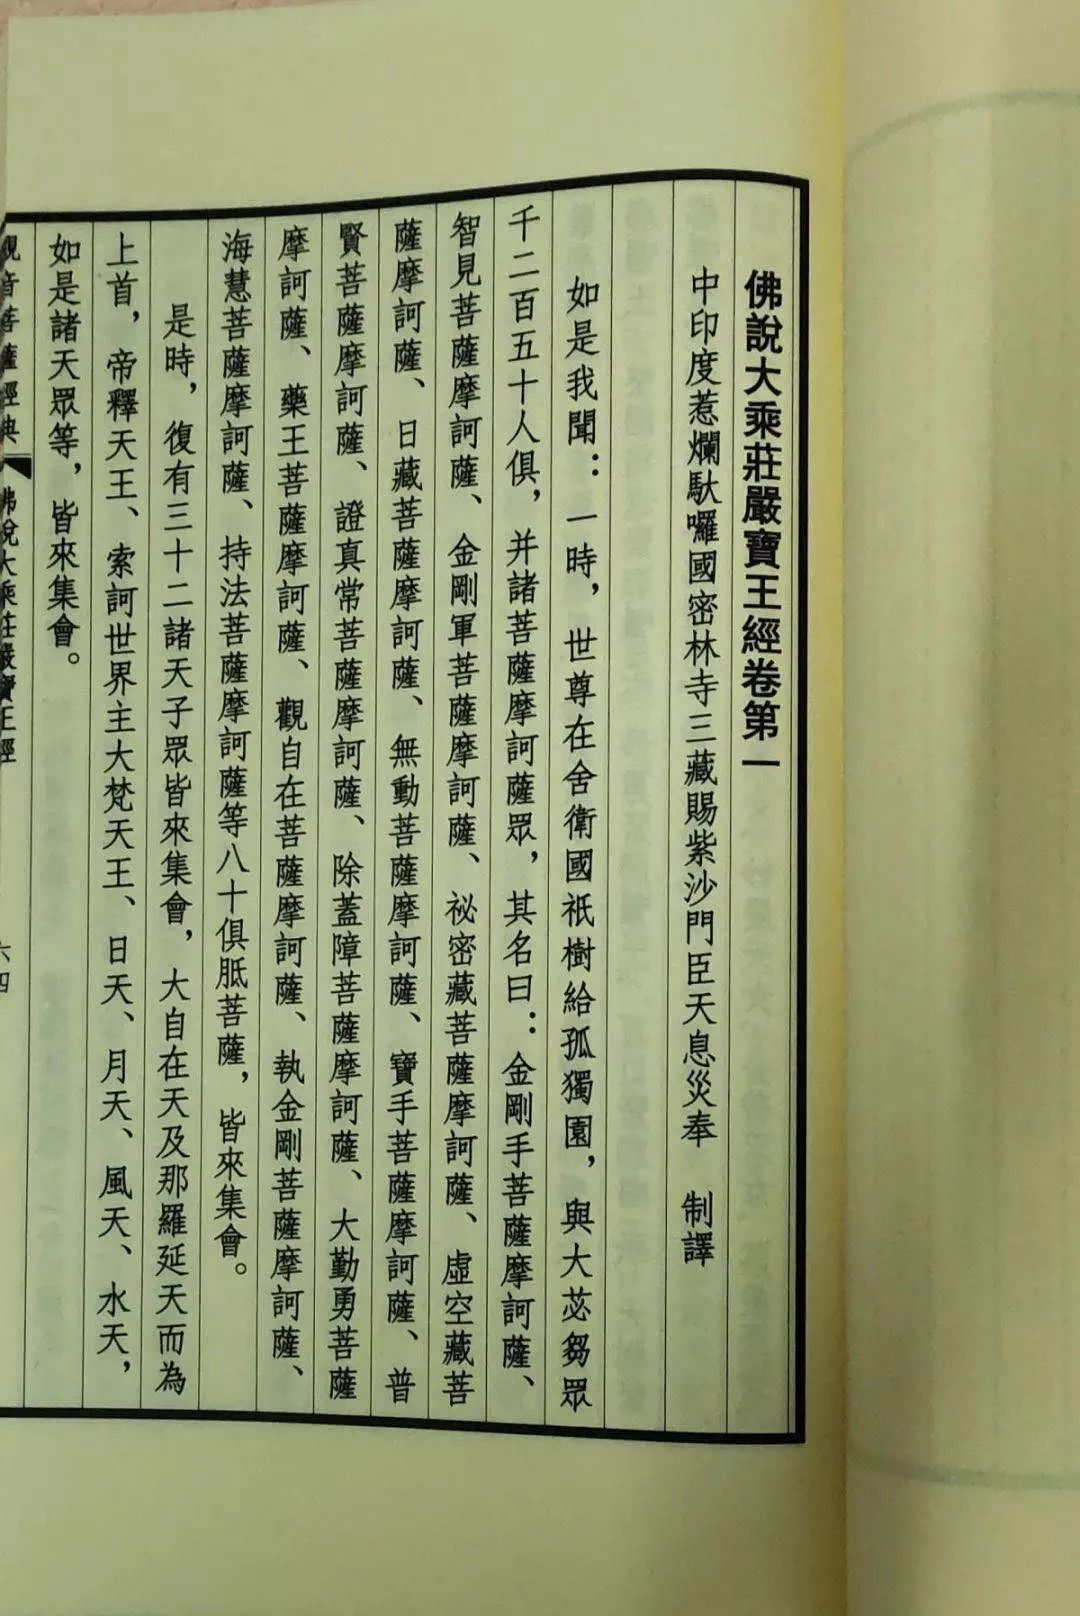 佛說大乘莊嚴寶王經卷第一
中印度惹爛馱囉國密林寺三藏賜紫沙門臣天息災奉　制譯
如是我聞：一時，世尊在舍衛國祇樹給孤獨園，與大苾芻眾
千二百五十人俱，并諸菩薩摩訶薩眾，其名曰：金剛手菩薩摩訶薩、
智見菩薩摩訶薩、金剛軍菩薩摩訶薩、祕密藏菩薩摩訶薩、虛空藏菩
薩摩訶薩、日藏菩薩摩訶薩、無動菩薩摩訶薩、寶手菩薩摩訶薩、普
賢菩薩摩訶薩、證真常菩薩摩訶薩、除蓋障菩薩摩訶薩、大勤勇菩薩
摩訶薩、藥王菩薩摩訶薩、觀自在菩薩摩訶薩、執金剛菩薩摩訶薩、
海慧菩薩摩訶薩、持法菩薩摩訶薩等八十俱胝菩薩，皆來集會。
是時，復有三十二諸天子眾皆來集會，大自在天及那羅延天而為
上首，帝釋天王、索訶世界主大梵天王、日天、月天、風天、水天，
如是諸天眾等，皆來集會。
觀音菩薩經典　佛說大乘莊嚴寶王經　六四